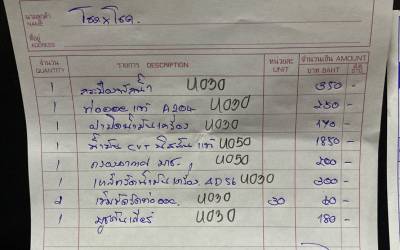 นามลูกค้า
NAME
โชคxโชค.
ที่อยู่
ADDRESS
จำนวน QUANTITY รายการ DESCRIPTION หน่วยละ UNIT จำนวนเงิน AMOUNT
บาท BAHT
1 U030 350 -
1 แท้ A204 U030 250 -
1 ฝาปิดน้ำมันเครื่อง U030 170 -
1 น้ำมัน CVT นิสสัน แท้ U050 1850 -
1 กรองอากาศ U050 200 -
1 เหล็กวัดน้ำมันเครื่อง 4D56 U030 300 -
2 เข็มขัดรัดท่อ U030 30 60 -
1 U030 180 -